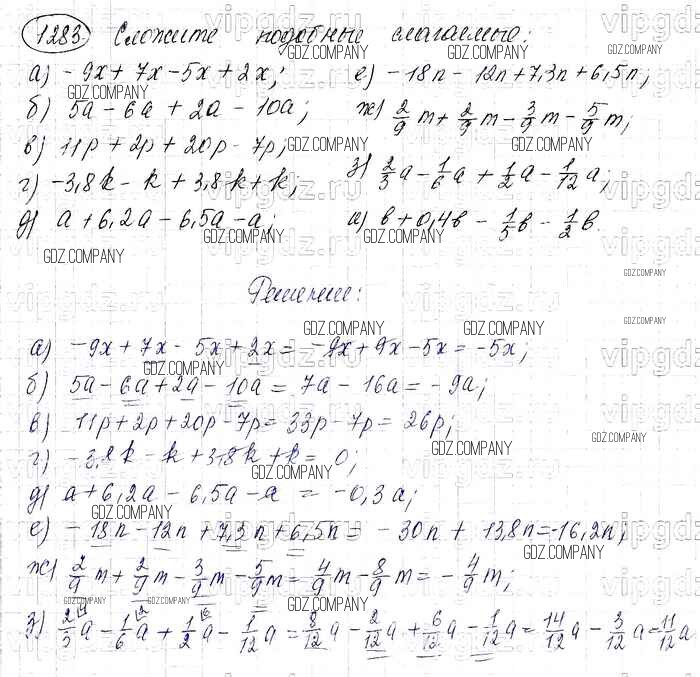 1283. Сложите подобные слагаемые:
а) -9x + 7x - 5x + 2x; е) -18n - 12n + 7,3n + 6,5n;
б) 5a - 6a + 2a - 10a; ж) 2/9 m + 2/9 m - 3/9 m - 5/9 m;
в) 11p + 2p + 20p - 7p; з) 2/3 a - 1/6 a + 1/2 a - 1/12 a;
г) -3,8k - k + 3,8k + k;
д) a + 6,2a - 6,5a - a; и) b + 0,4b - 1/5 b - 1/2 b.
Решение:
а) -9x + 7x - 5x + 2x = -9x + 9x - 5x = -5x;
б) 5a - 6a + 2a - 10a = 7a - 16a = -9a;
в) 11p + 2p + 20p - 7p = 33p - 7p = 26p;
г) -3,8k - k + 3,8k + k = 0;
д) a + 6,2a - 6,5a - a = -0,3a;
е) -18n - 12n + 7,3n + 6,5n = -30n + 13,8n = -16,2n;
ж) 2/9 m + 2/9 m - 3/9 m - 5/9 m = 4/9 m - 8/9 m = -4/9 m;
з) 2/3 a - 1/6 a + 1/2 a - 1/12 a = 8/12 a - 2/12 a + 6/12 a - 1/12 a = 14/12 a - 3/12 a = 11/12 a